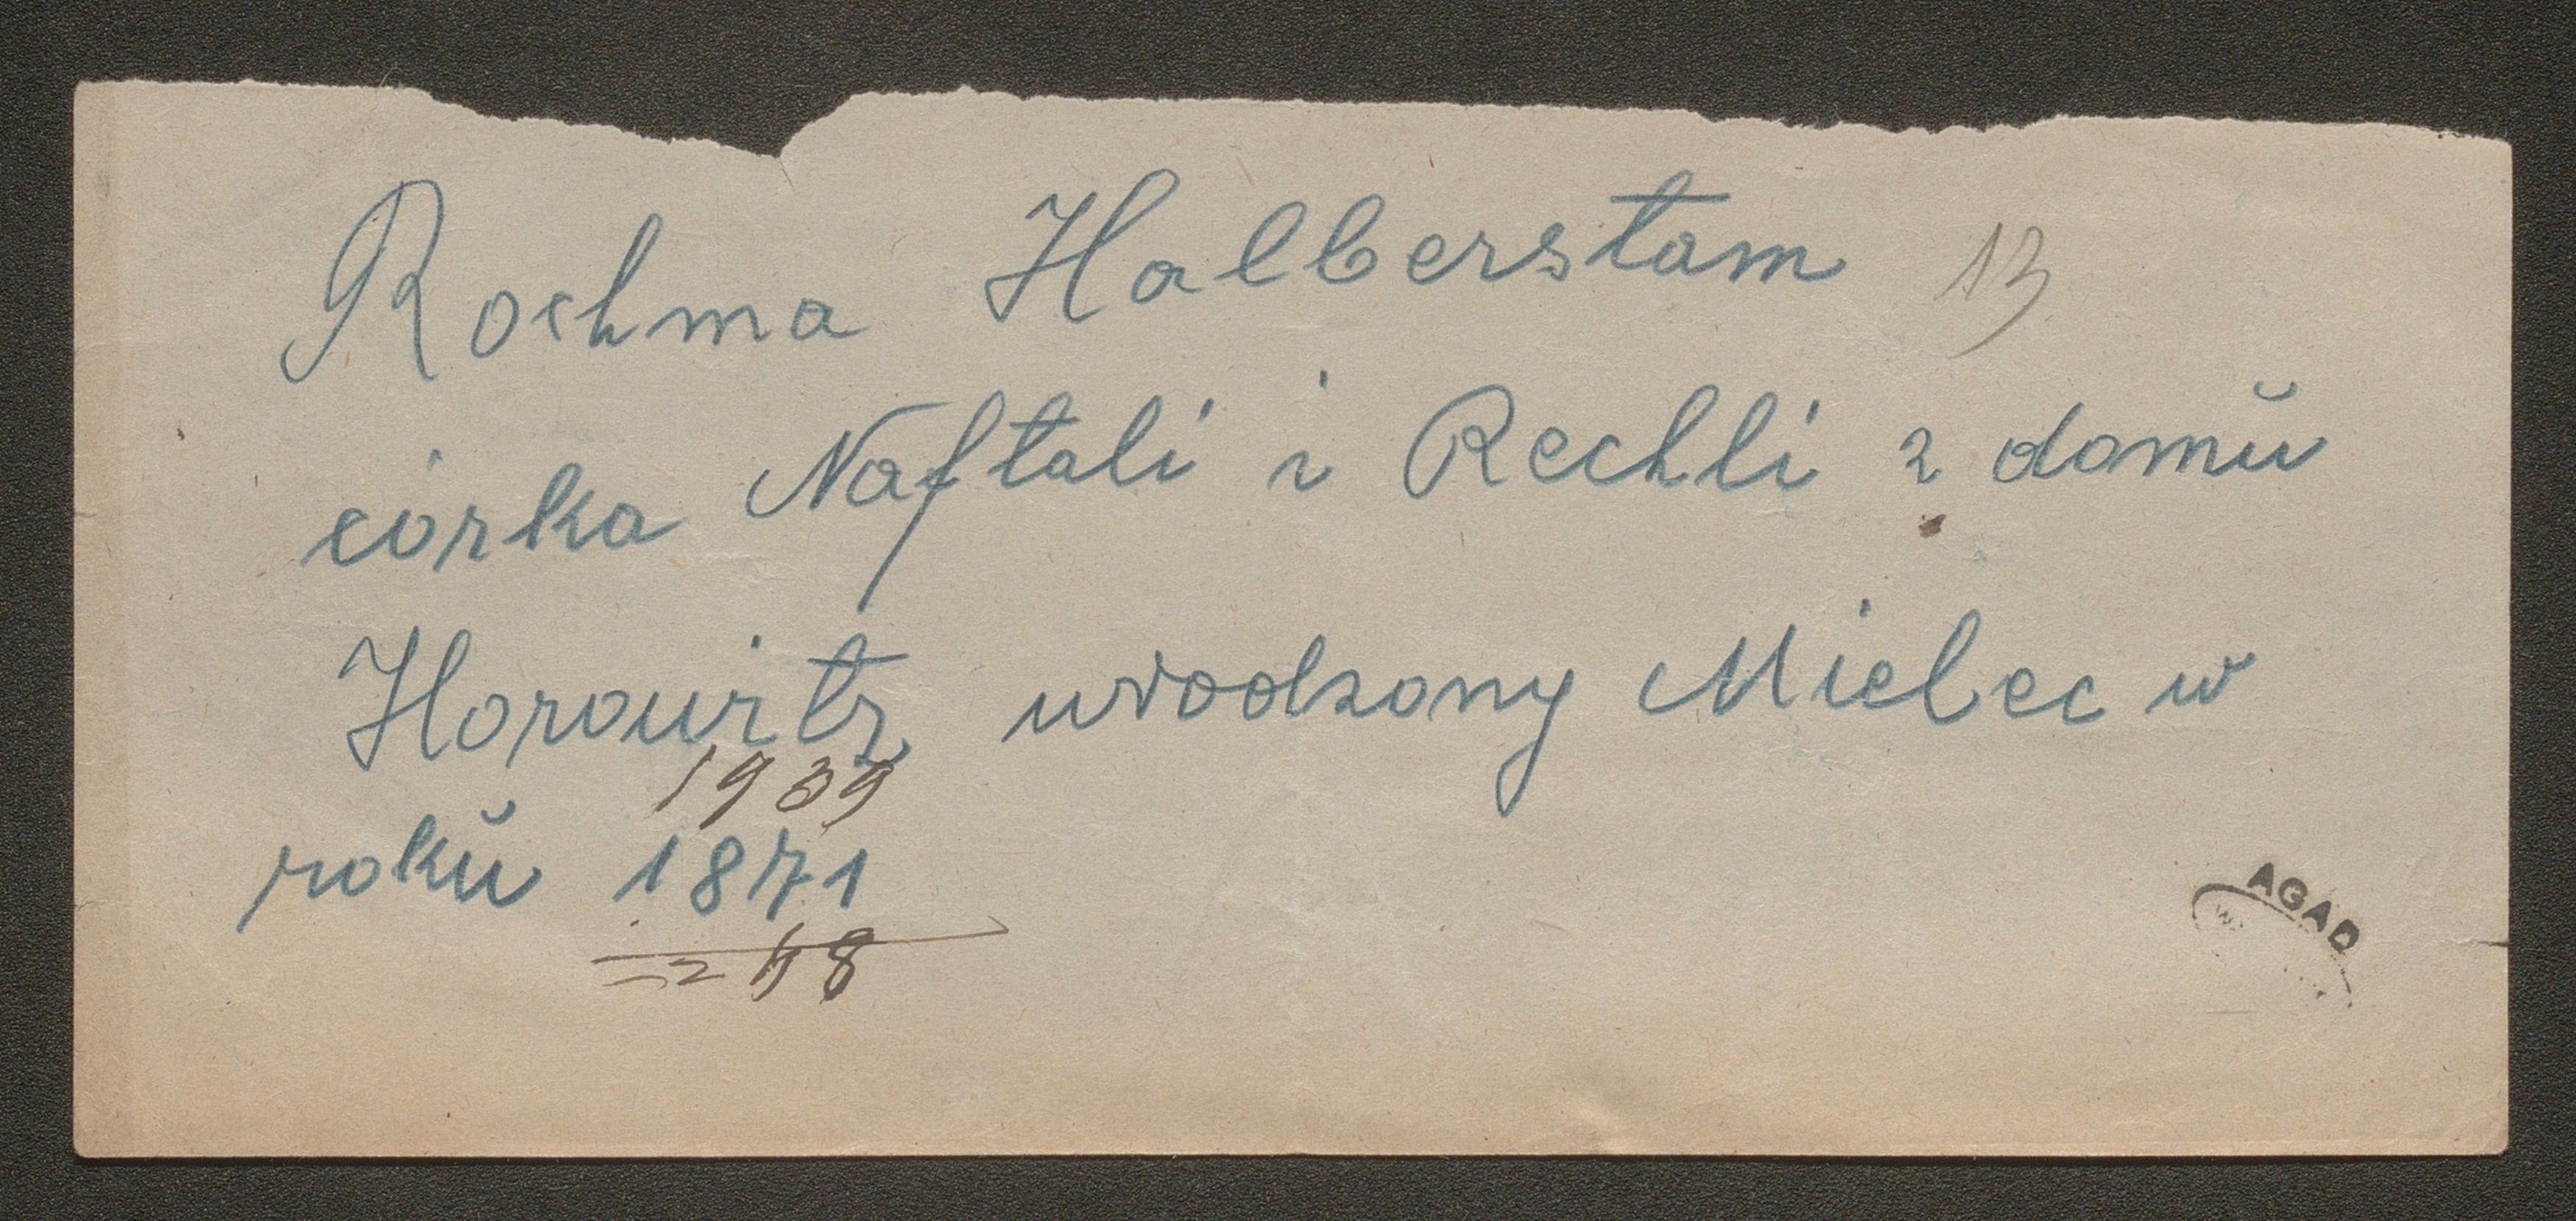 Rochma Halberstam 13
córka Naftali i Rechli z domŭ
Horowitz urodzony Mielec w
1939
rokŭ 1871
AGAD